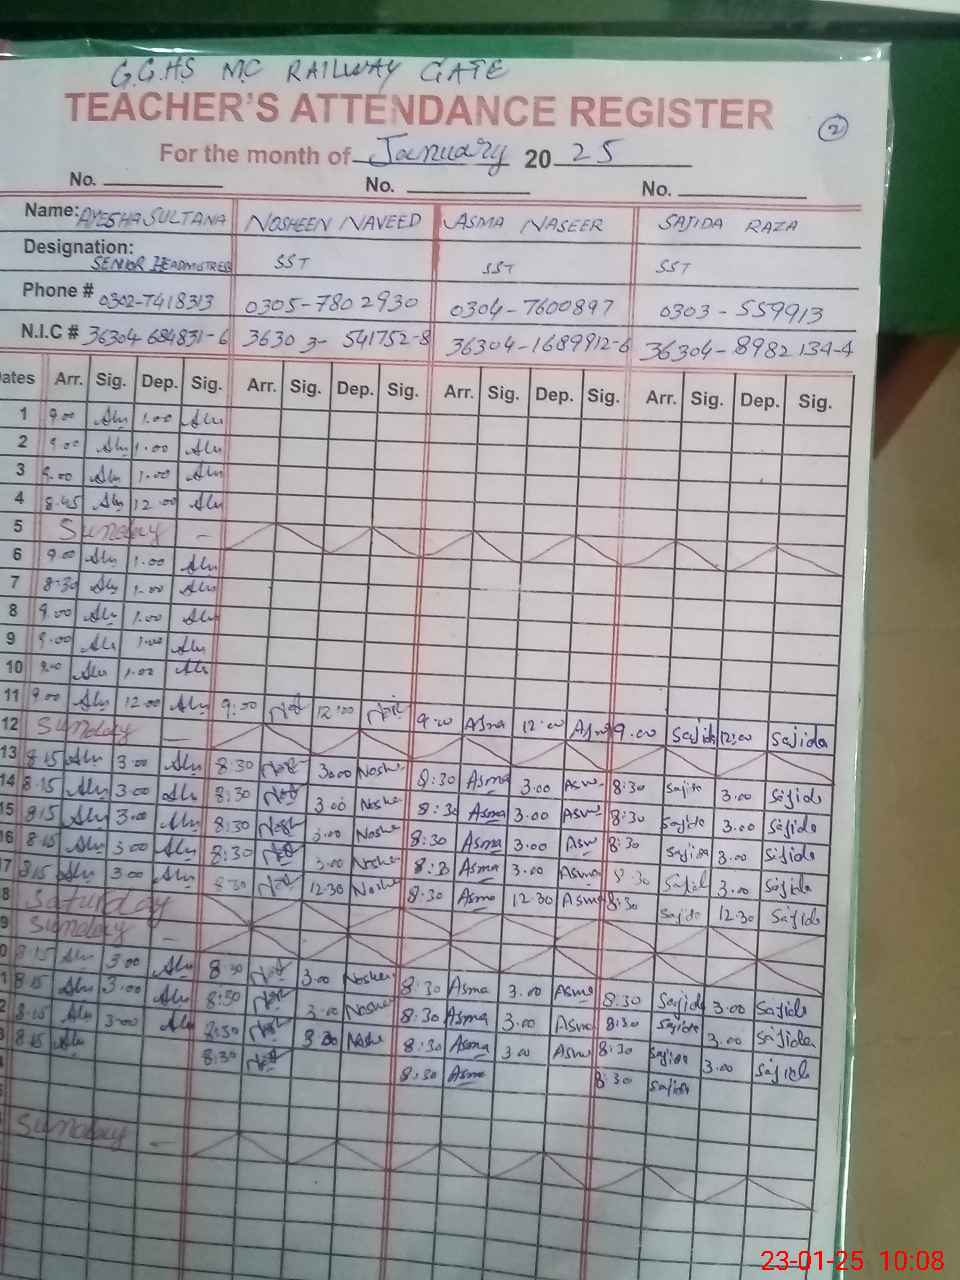 G.G.HS MC RAILWAY GATE
TEACHER'S ATTENDANCE REGISTER
2
For the month of January 20 25
No. No. No.
Name: AYESHA SULTANA NOSHEEN NAVEED ASMA NASEER SAJIDA RAZA
Designation: SENIOR HEADMISTRESS SST SST SST
Phone # 0302-7418313 0305-7802930 0304-7600897 0303-559913
N.I.C # 36304 684831-6 36303-541752-8 36304-1689912-6 36304-8982134-4
Dates Arr. Sig. Dep. Sig. Arr. Sig. Dep. Sig. Arr. Sig. Dep. Sig. Arr. Sig. Dep. Sig.
1 9.00 1.00
2 9.00 1.00
3 9.00 1.00
4 8.45 12.00
5 Sunday
6 9.00 1.00
7 8.30 1.00
8 9.00 1.00
9 9.00 1.00
10 9.00 1.00
11 9.00 12.00 9:00 12:00 9:00 Asma 12:00 Asma 9.00 Sajida 12:00 Sajida
12 Sunday
13 8.15 3.00 8:30 3.00 Noshe 8:30 Asma 3.00 Asma 8:30 Sajida 3.00 Sajida
14 8.15 3.00 8:30 3.00 Noshe 8:30 Asma 3.00 Asma 8:30 Sajida 3.00 Sajida
15 8.15 3.00 8:30 3.00 Noshe 8:30 Asma 3.00 Asma 8:30 Sajida 3.00 Sajida
16 8.15 3.00 8:30 3.00 Noshe 8:30 Asma 3.00 Asma 8:30 Sajida 3.00 Sajida
17 8.15 3.00 8:30 12.30 Noshe 8:30 Asma 12.30 Asma 8:30 Sajida 12.30 Sajida
8 Saturday
9 Sunday
0 8.15 3.00 8:30 3.00 Noshe 8:30 Asma 3.00 Asma 8:30 Sajida 3.00 Sajida
1 8.15 3.00 8:30 3.00 Noshe 8:30 Asma 3.00 Asma 8:30 Sajida 3.00 Sajida
2 8.15 3.00 8:30 Noshe 8:30 Asma 3.00 Asma 8:30 Sajida 3.00 Sajida
8.15 8:30 8:30 Asma 8:30 Sajida
Sunday
23-01-25 10:08